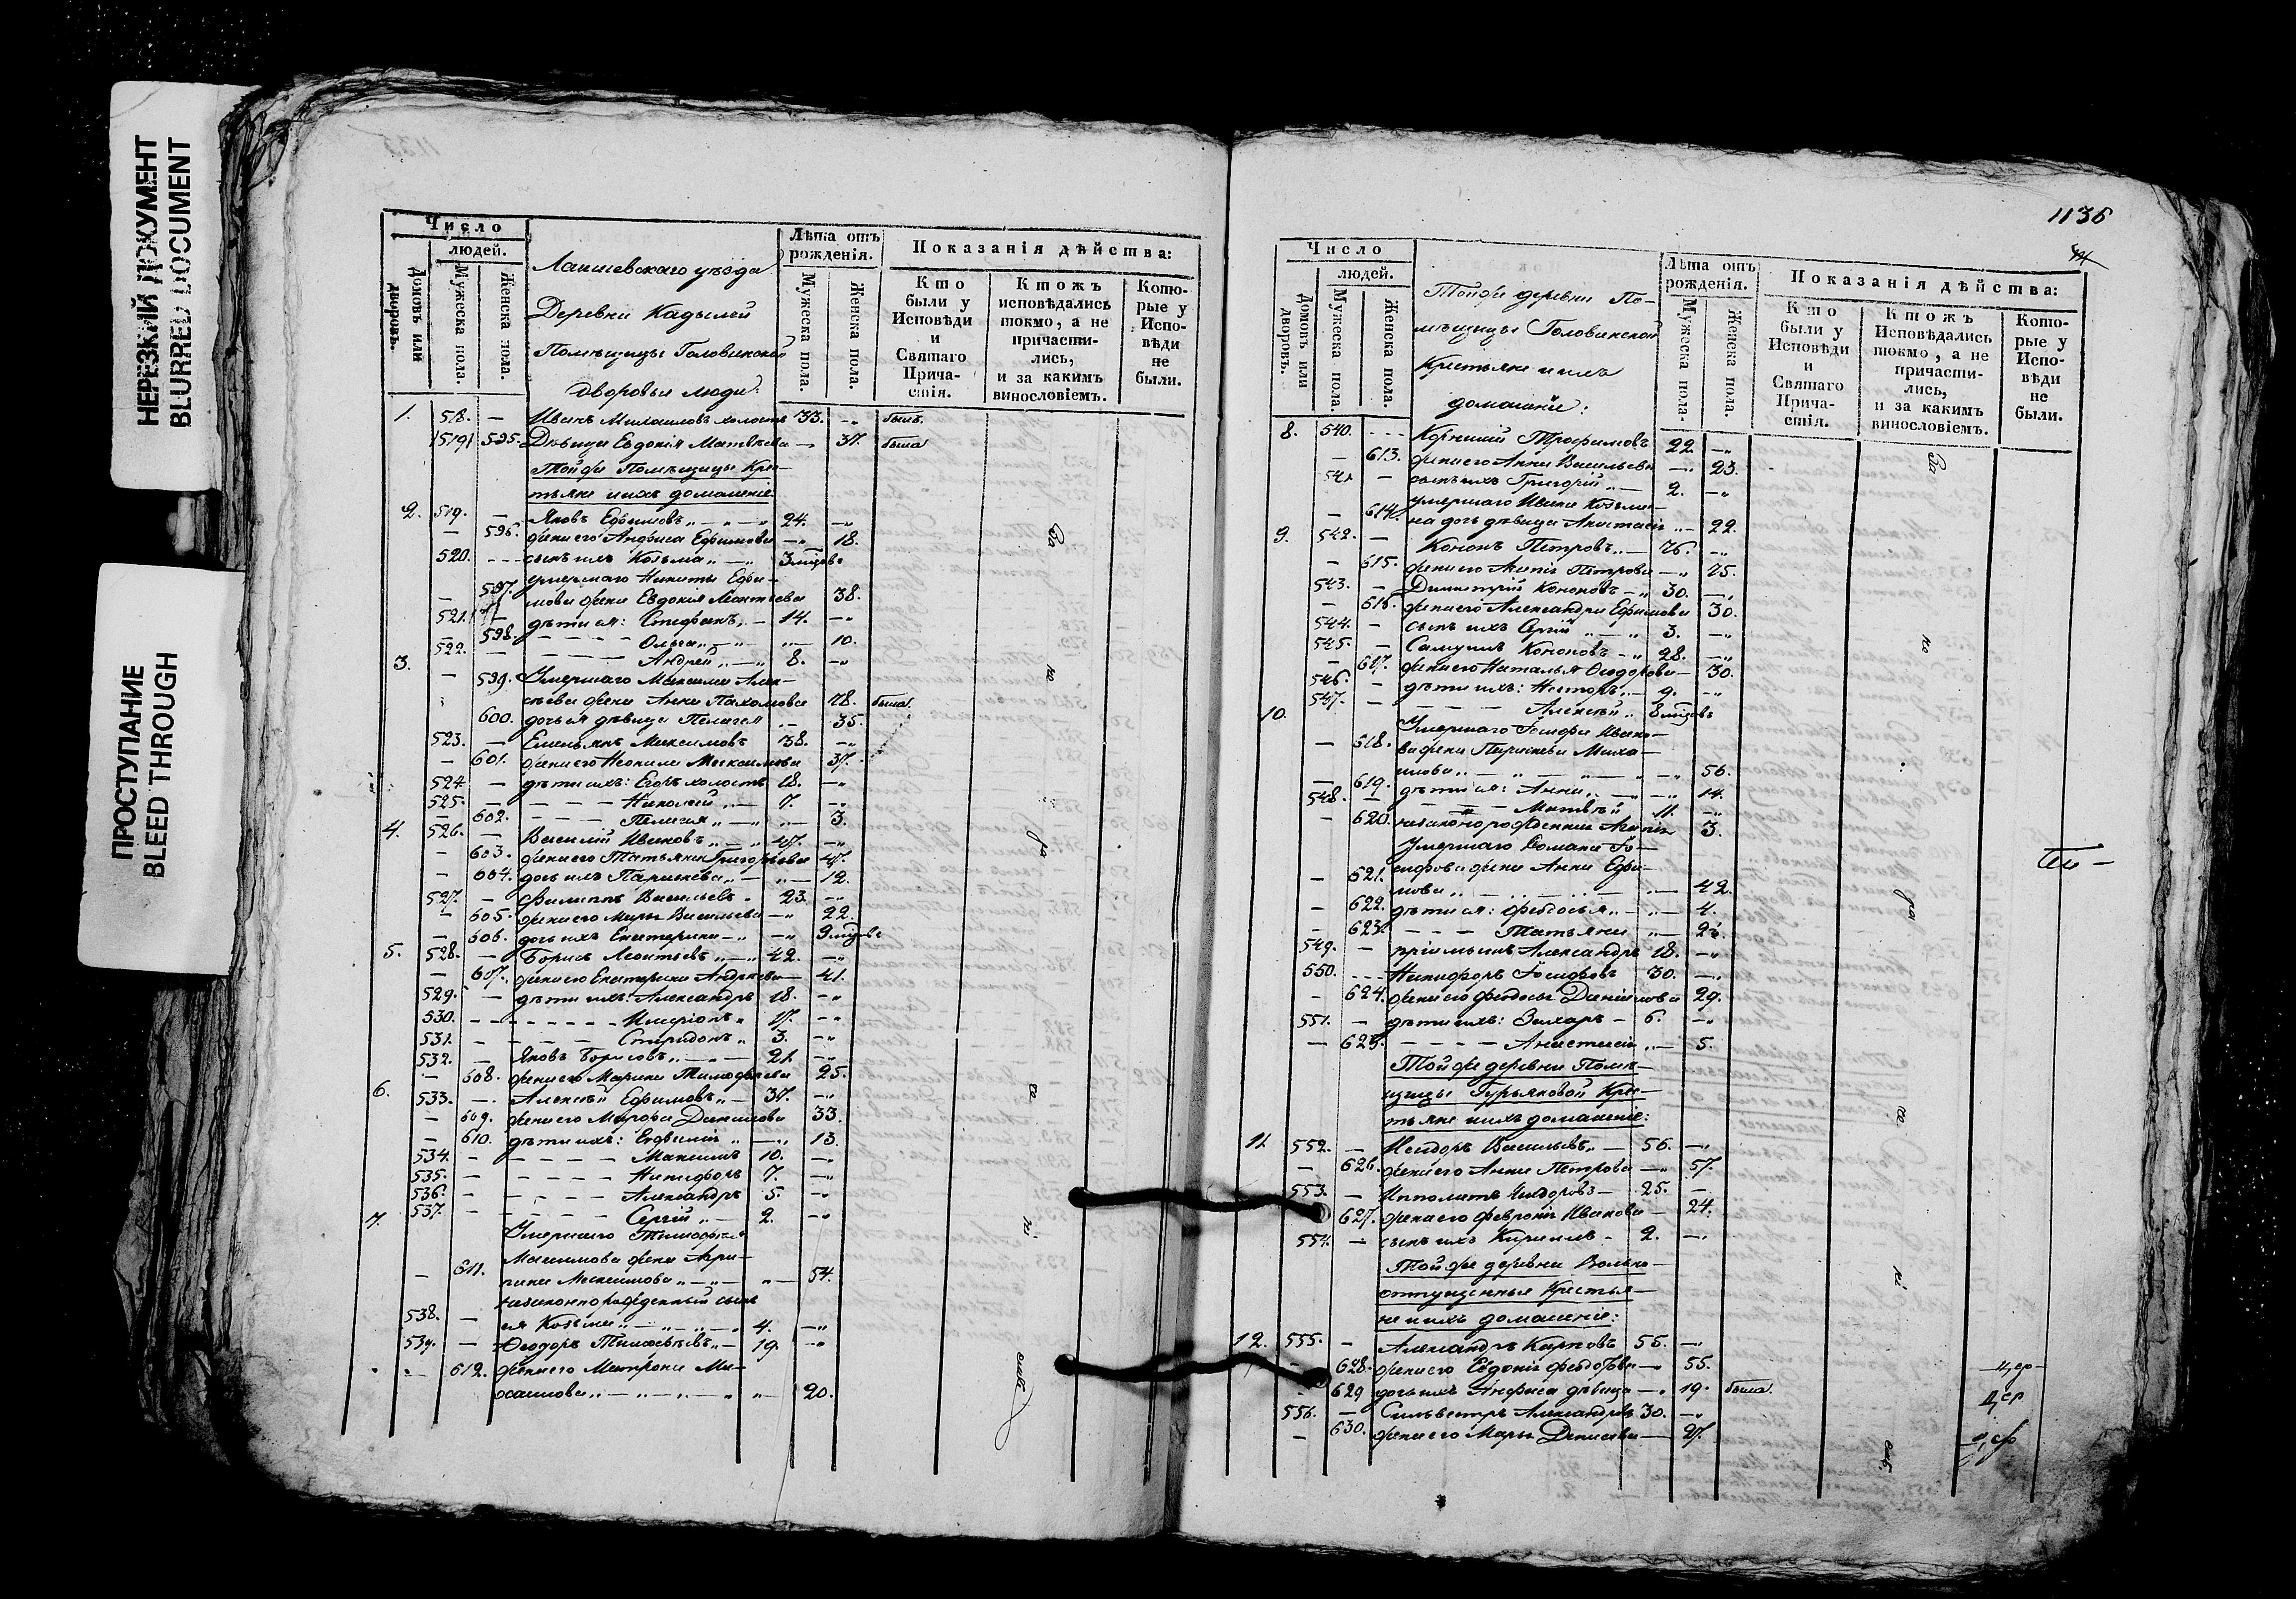 НЕРЕЗКИЙ ДОКУМЕНТ
BLURRED DOCUMENT
ПРОСТУПАНИЕ
BLEED THROUGH
Число
людей.
Домовъ или дворовъ.
Мужеска пола.
Женска пола.
Лаишевскаго уѣзда
Деревни Кадылей
Помѣщицы Головинской
дворовые люди:
Лѣта отъ рожденія.
Мужеска пола.
Женска пола.
Показанія дѣйства:
Кто были у Исповѣди и Святаго Причастія.
Ктожъ исповѣдались токмо, а не причастились, и за какимъ винословіемъ.
Которые у Исповѣди не были.
1. 518. — Иванъ Михаиловъ холостъ 33. —„ былъ.
595. Дѣвица Евдокія Матвѣева — 37. была
Той же Помѣщицы Крес-
тьяне и ихъ домашніе
2. 519. — Яковъ Ефимовъ „ — „ — „ 24. —„
— 596. жена его Анфиса Ефимова —„ 18.
520. — — сынъ ихъ Козьма „ — „ 3 мѣсяцовъ
умершаго Никиты Ефи-
— 597. мова жена Евдокія Леонтьева 38.
521. — дѣти ея: Стефанъ „ — 14. —„
— 598. — — — — Ольга „ — „ „— 10.
522. — — — — — Андрей „ — „ 8. —„
3. — 599. Умершаго Максима Алек-
сѣева жена Анна Пахомова 78. была.
600. дочь ея дѣвица Пелагея „ — 35.
523. — Емельянъ Максимовъ 38. —„
— 601. жена его Неонила Максимова 37.
524 — дѣти ихъ: Егоръ холостъ 18. —„
525. — — — — Николай „ — 7. —„
— 602. — — — Пелагея „ — „ „— 3.
4. 526. — Василій Ивановъ „ — „ 47. —„
— 603. жена его Татьяна Григорьева 47.
— 604. дочь ихъ Параскева „ — „— 12.
527. — Филиппъ Васильевъ „ 23. —„
— 605. жена его Марья Васильева —„ 22.
— 606. дочь ихъ Екатерина — „ —„ 9 мѣсяцовъ
5. 528. — Борисъ Леонтьевъ „ — „ 42. —„
— 607. жена его Екатерина Андреева — 41.
529. — дѣти ихъ: Александръ 18. —„
530. — — — — — — Иларіонъ „ 17. —„
531. — — — — — Спиридонъ „ 3. —„
532. — Яковъ Борисовъ „ — „ — 21. —„
— 608. жена его Марина Тимофѣева 25.
6. 533. — Алексѣй Ефимовъ „ — 37. —„
— 609. жена его Марфа Данилова 33.
— 610. дѣти ихъ: Евфимія „ — „ 13.
534. — — — — — Максимъ 10. —„
535. — — — — — Никифоръ 7. —„
536. — — — — — Александръ 5. —„
537. — — — — — Сергій „ — 2. —„
7. Умершаго Тимофея
— 611. Максимова жена Агри-
пина Максимова „ — „ — „ — 54.
незаконнорожденный сынъ
538. — ея Козьма „ — „ — „ — „ 4. —„
539. — Ѳеодоръ Тимофѣевъ „ — 19. —„
— 612. жена его Матрона Ми-
хаилова „ — „ — „ — „ „— 20.
За не ра че ні емъ
1136
Число
людей.
Домовъ или дворовъ.
Мужеска пола.
Женска пола.
Той же деревни По-
мѣщицы Головинской
Крестьяне и ихъ
домашніе:
Лѣта отъ рожденія.
Мужеска пола.
Женска пола.
Показанія дѣйства:
Кто были у Исповѣди и Святаго Причастія.
Ктожъ Исповѣдались токмо, а не причастились, и за какимъ винословіемъ.
Которые у Исповѣди не были.
8. 540. — — Корнилій Трофимовъ 22. —„
— 613. жена его Анна Васильева —„ 23.
541. — сынъ ихъ Григорій „ — 2. —„
умершаго Ивана Козьми-
— 614. на дочь дѣвица Анастасія „ — 22.
9. 542. — Кононъ Петровъ „ — 76. —„
— 615. жена его Агапія Петрова —„ 75.
543. — Димитрій Кононовъ — „ 30. —„
— 616. жена его Александра Ефимова 30.
544. — сынъ ихъ Сергій „ — „ 3. —„
545. — Самуилъ Кононовъ — „ 28. —„
— 617. жена его Наталья Ѳеодорова — 30.
546. — дѣти ихъ: Несторъ „ — 9. —„
547. — — — — — Алексѣй „ 8 мѣсяцовъ
10. Умершаго Іосифа Ивано-
— 618. ва жена Параскева Миха-
илова „ — „ — „ — „ —„ 56.
— 619. дѣти ея: Анна „ — „ —„ 14.
548. — — — — Матвѣй 11. —„
— 620. незаконорожденная Агапія 3.
Умершаго Романа Іо-
— 621. сифова жена Анна Ефи-
мова „ — „— 42.
— 622. дѣти ея: Ѳеодосья „ — „— 4.
— 623. — — — Татьяна „— 2½
549. — пріемышъ Александръ 18. —„
550. — — Никифоръ Іосифовъ 30. —„
— 624. жена его Ѳеодосья Даниилова 29.
551. — дѣти ихъ: Захаръ — 6. —„
— 625. — — — — Анастасія „— 5.
Той же деревни Помѣ-
щицы Гурьяновой Крес-
тьяне и ихъ домашніе:
11. 552. — Исидоръ Васильевъ „ — 56. —„
— 626. жена его Анна Петрова —„ 57.
553. — Ипполитъ Исидоровъ — 25. —
627. жена его Февронія Иванова — 24.
554. — сынъ ихъ Кириллъ — 2. —„
Той же деревни Вольно-
отпущенные Крестья-
не и ихъ домашніе:
12. 555. — Александръ Карповъ 55. —„
— 628. жена его Евдокія Ѳеодорова — 55.
— 629 дочь ихъ Анфиса дѣвица —„ 19. была.
556. — Сильвестръ Александровъ 30. —„
— 630. жена его Марья Денисова — 27.
За не ра че ні емъ